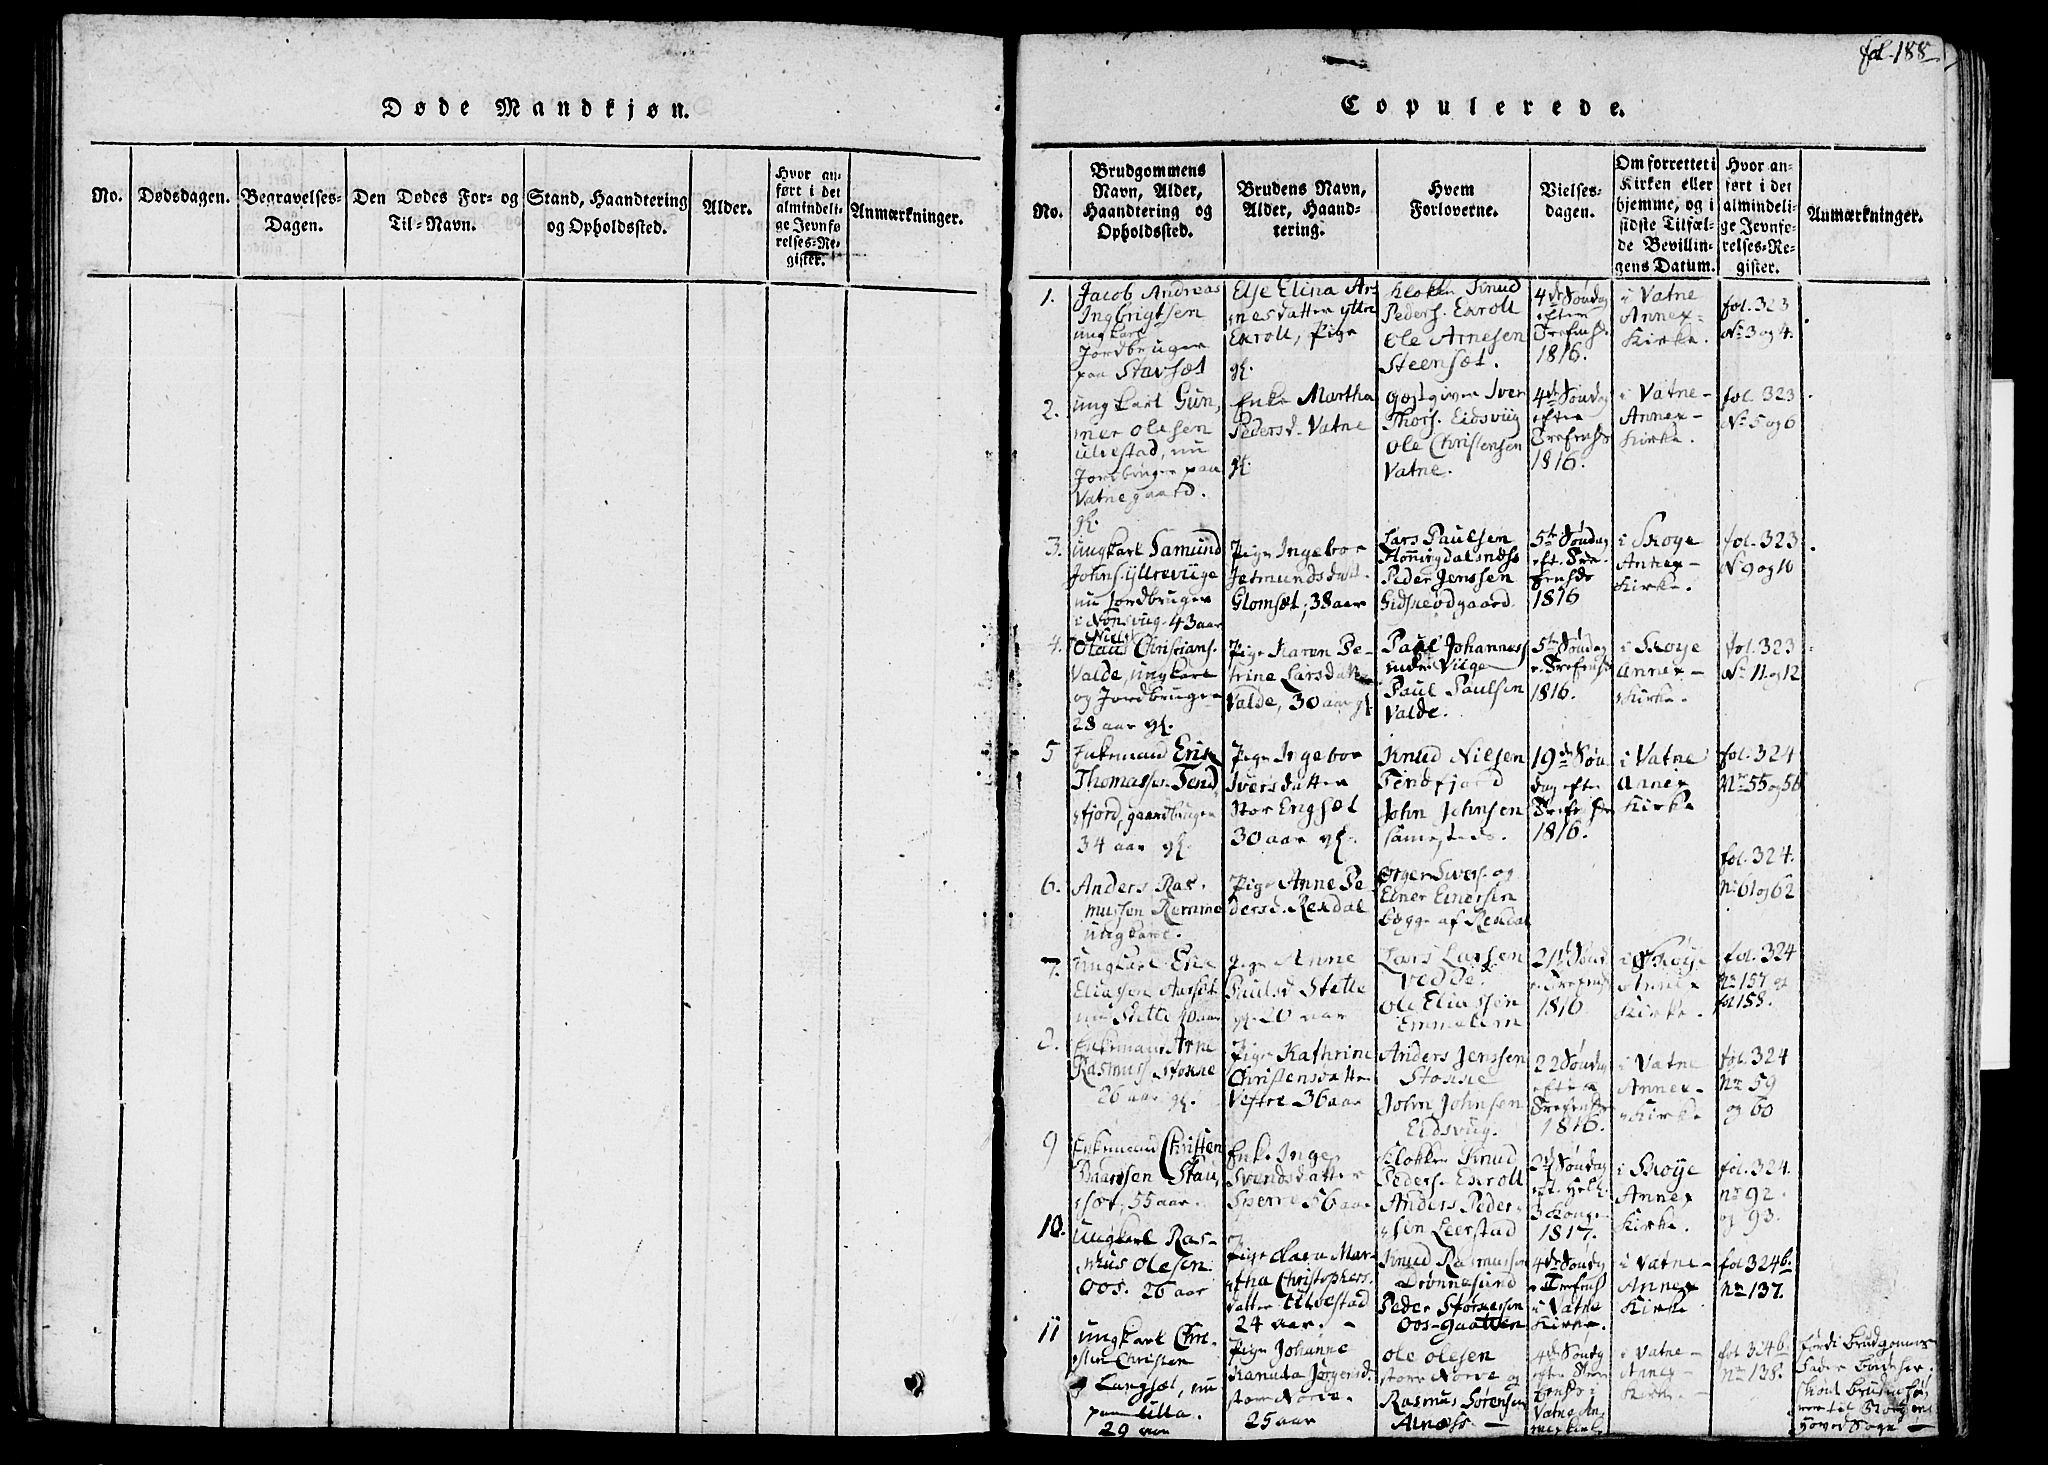 fol. 188
Døde Mandkjøn.
No.
Dødsdagen.
Begravelses-
Dagen.
Den Dødes For- og
Til-Navn.
Stand, Haandtering
og Opholdssted.
Alder.
Hvor an-
ført i det
almindeli-
ge Jevnfø-
relses-Re-
gister.
Anmærkninger.
Copulerede.
No.
Brudgommens
Navn, Alder,
Haandtering og
Opholdssted.
Brudens Navn,
Alder, Haand-
tering.
Hvem
Forloverne.
Vielses-
dagen.
Om forrettet i
Kirken eller
hjemme, og i
sidste Tilfæl-
de Bevillin-
gens Datum.
Hvor an-
ført i det
almindeli-
ge Jevnfø-
relses-Re-
gister.
Anmærkninger.
1.
Jacob Andreas
Ingbrigtsen
ungkarl
Jordbruger
paa Stavsæt
Else Elina Ar-
nesdatter yttre
Exroll, Pige
Klokker Knud
Peders. Exroll
Ole Arnesen
Steensæt.
4de Søndag
efter
Trefoldh.
1816.
i Vatne
Annex-
Kirke.
fol. 323
No 3 og 4.
2.
ungkarl Gun-
ner Olesen
Ulvestad, nu
Jordbruger paa
Vatne gaard.
Enke Martha
Pedersd. Vatne
Gæstgiver Iver
Thors. Eidsviig
Ole Christensen
Vatne.
4de Søndag
efter
1816.
i Vatne-
Annex-
Kirke.
fol. 323
No 5 og 6
3.
ungkarl Samund
Johns. yttreviige
nu Jordbruger
43 aar
Pige Ingebor
Glomsæt, 38 aar
Lars Paulsen
Honningdalsnæss
Peder Jenssen
Gidskeødgaard
5te Søndag
eft. Tre-
1816
i Skoye
Annex-
Kirke.
fol. 323
No 9 og 10
4.
Olaus Christians.
Valde, ungkarl
og Jordbruger
28 aar
Pige Karen Pe-
trine Larsdatt.
Valde, 30 aar
Paul Johanness
indre Viige
Paul Paulsen
Valde.
5te Søndag
1816.
i Skoye
Annex-
Kirke.
fol. 323
No 11 og 12
5
Enkemand Erik
Thomassen Tend-
fjord, gaardbruger
34 aar
Pige Ingebor
Iversdatter
Stor Engsæt
30 aar
Knud Nilsen
Tendfjord
John Johnsen
sammesteds.
19de Søn-
dag efter
1816.
i Vatne
Annex
Kirke
fol. 324
No 55 og 56
6.
Anders Ras-
mussen Remme
ungkarl.
Pige Anne Pe-
dersd. Rexdal
Einer Einersen
begge af Rexdal
fol. 324.
No 61 og 62
7.
ungkarl Erik
Eliassen Aarsæt
nu Stette 40 aar
Pige Anne
Paulsd Stette
20 aar
Lars Larsen
Vedde.
Ole Eliassen
Emmelem
21de Sønd
1816
i Skoye
Annex
Kirke.
fol. 324
No 157 og
158.
8.
Enkemand Arne
Rasmuss Stokke
26 aar
Pige Kathrine
Christensdatter
Vestre 36 aar
Anders Jenssen
Stokke
John Johnsen
Eidsvug.
22 Søndag
efter
1816.
i Vatne
Annex-
Kirke
fol. 324
No 59
og 60
9
Enkemand Christen
Baardsen Stau-
sæt, 55 aar.
Enke Inge
Svendsdatter
Sperre 56 aar
Klokker Knud
Peders. Exroll
Anders Peder-
sen Leerstad
2d Søndag
eft. Hell.
3 Konger
1817.
i Skoye
Annex
Kirke.
fol. 324.
No 92.
og 93.
10.
ungkarl Ras-
mus Olesen
Oos. 26 aar
Pige Maren Mar-
tha Christophers-
datter Ulvestad
24 aar. -
Knud Rasmussen
Drønnesund
Peder
Oos-gaarden
4de Søndag
i Vatne
Kirke.
i Vatne-
Annex
Kirke
fol 324b.
No 137.
11
ungkarl Chri-
sten Christen
Langsæt, nu
paa Ulla.
29 aar
Pige Johanne
Kanuta Jørgensd.
store Norve.
25 aar
Ole Olesen
store Norve og
Rasmus Sørensen
Alnæss -
4de Søndag
efter
i
Vatne An-
nexkirke
i Vatne-
Annex-
Kirke. -
fol 324b.
No 138.
fordi Brudgommens
Fader
Bruden
til
Hoved Sogn -